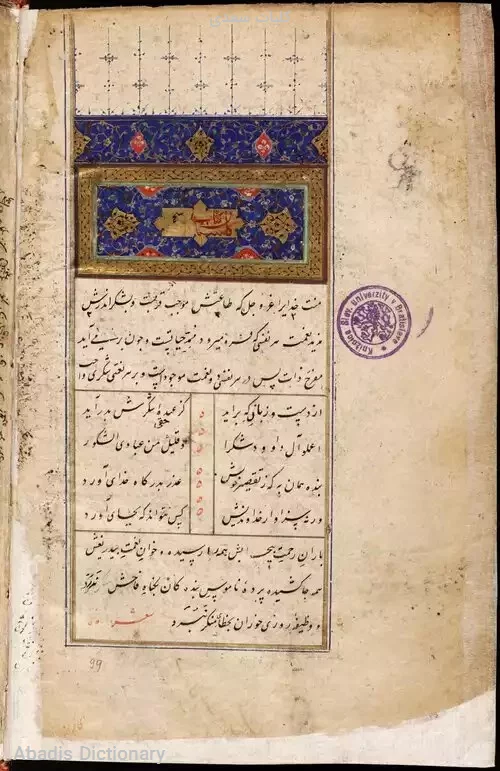 کلیات سعدی
منت خدایرا عز و جل که طاعتش موجب قربتست و بشکر اندرش
مزید نعمت هر نفسی که فرو میرود ممد حیاتست و چون بر می آید
مفرح ذات پس در هر نفسی دو نعمت موجود است و بر هر نعمتی شکری واجب
از دست و زبان که برآید
کز عهده شکرش بدر آید
اعملوا آل داود شکرا
و قلیل من عبادی الشکور
بنده همان به که ز تقصیر خویش
عذر بدرگاه خدای آورد
ورنه سزاوار خداوندیش
کس نتواند که بجای آورد
باران رحمت بیحسابش همه را رسیده و خوان نعمت بیدریغش
همه جا کشیده پرده ناموس بندگان بگناه فاحش ندرد
و وظیفه روزی خوران بخطای منکر نبرد
Knižnica Slov. univerzity v Bratislave
99
Abadis Dictionary